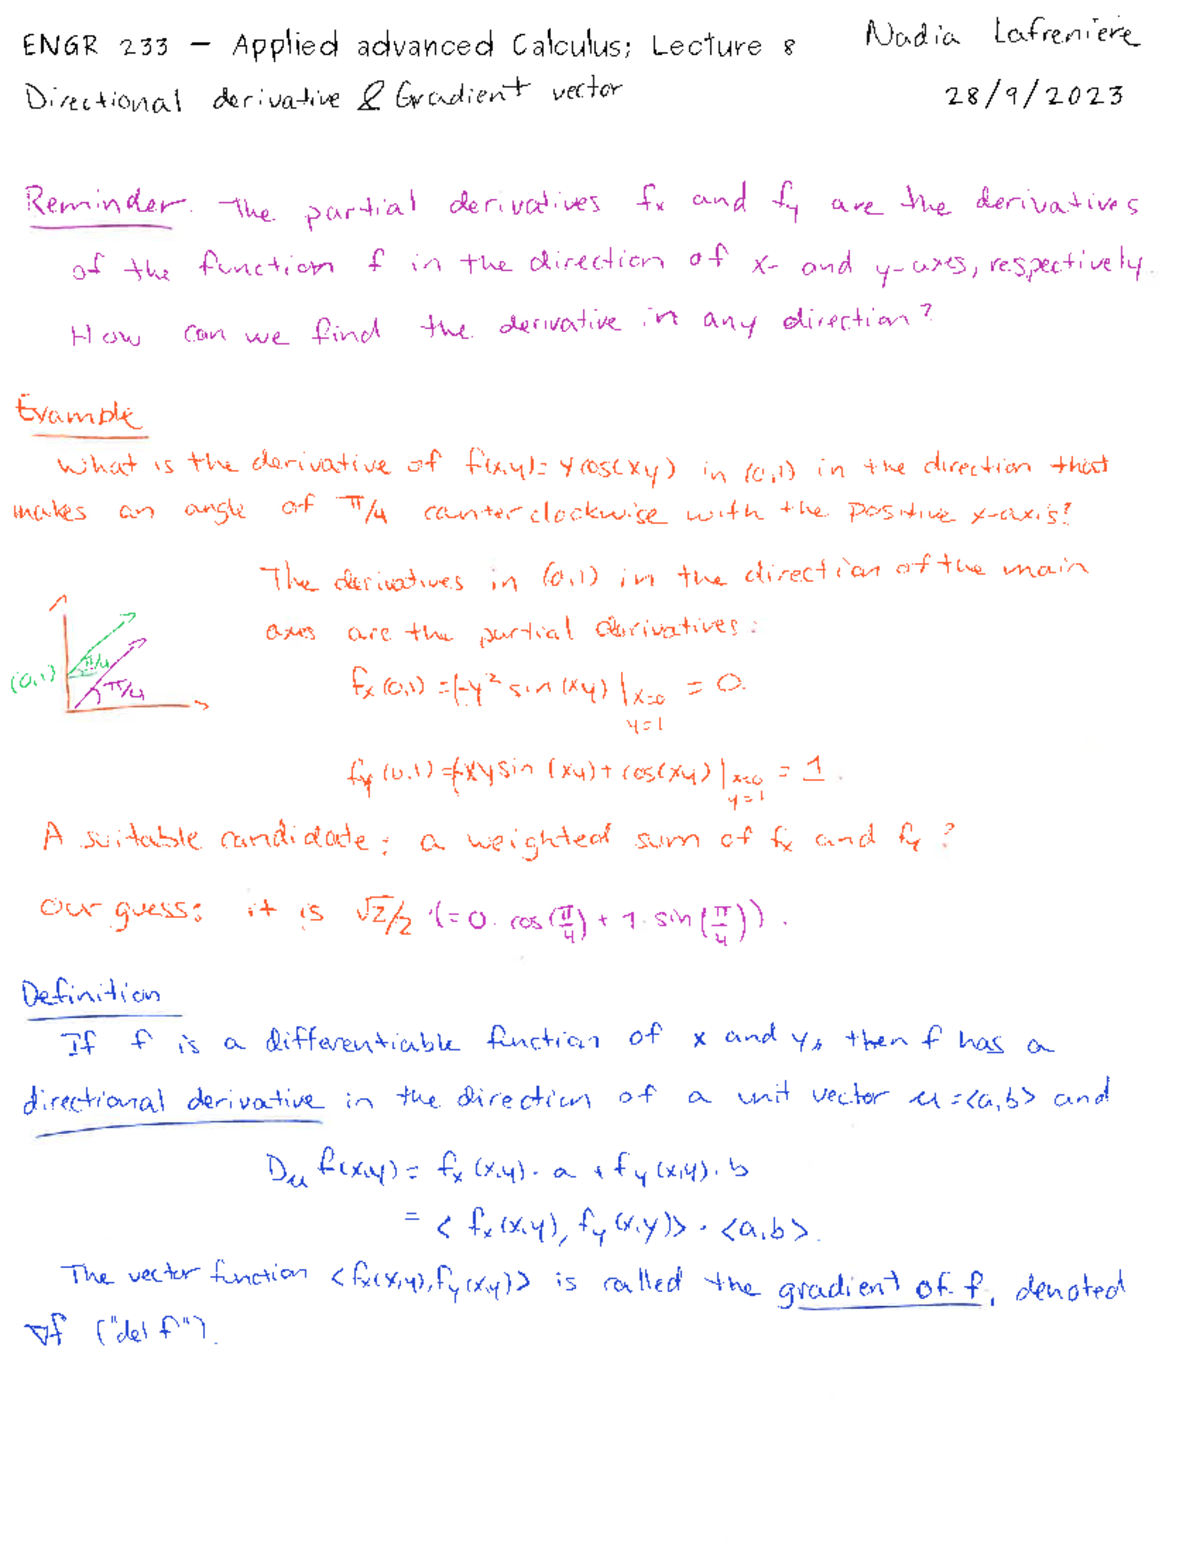 ENGR 233 – Applied advanced Calculus; Lecture 8 Nadia Lafrenière
Directional derivative & Gradient vector 28/9/2023
Reminder. The partial derivatives fx and fy are the derivatives
of the function f in the direction of x- and y-axes, respectively.
How can we find the derivative in any direction?
Example
What is the derivative of f(x,y)= y cos(xy) in (0,1) in the direction that
makes an angle of π/4 counterclockwise with the positive x-axis?
The derivatives in (0,1) in the direction of the main
axes are the partial derivatives:
(0,1) π/4
π/4
fx(0,1) = (-y² sin(xy) |x=0 = 0.
y=1
fy(0,1) = (-xy sin(xy) + cos(xy) |x=0 = 1.
y=1
A suitable candidate: a weighted sum of fx and fy?
Our guess: it is √2/2 (= 0. cos(π/4) + 1. sin(π/4)).
Definition
If f is a differentiable function of x and y, then f has a
directional derivative in the direction of a unit vector u=<a,b> and
Du f(x,y) = fx(x,y). a + fy(x,y). b
= < fx(x,y), fy(x,y)> · <a,b>.
The vector function <fx(x,y), fy(x,y)> is called the gradient of f, denoted
∇f ("del f").